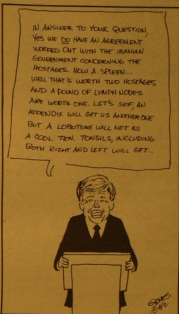 IN ANSWER TO YOUR QUESTION,
YES WE DO HAVE AN AGREEMENT
WORKED OUT WITH THE IRANIAN
GOVERNMENT CONCERNING THE
HOSTAGES. NOW A SPLEEN...
WELL THAT'S WORTH TWO HOSTAGES
AND A POUND OF LYMPH NODES
ARE WORTH ONE. LET'S SEE, AN
APPENDIX WILL GET US ANOTHER ONE
BUT A LOBOTOMY WILL NET US
A COOL TEN. TONSILS, INCLUDING
BOTH RIGHT AND LEFT WILL GET...